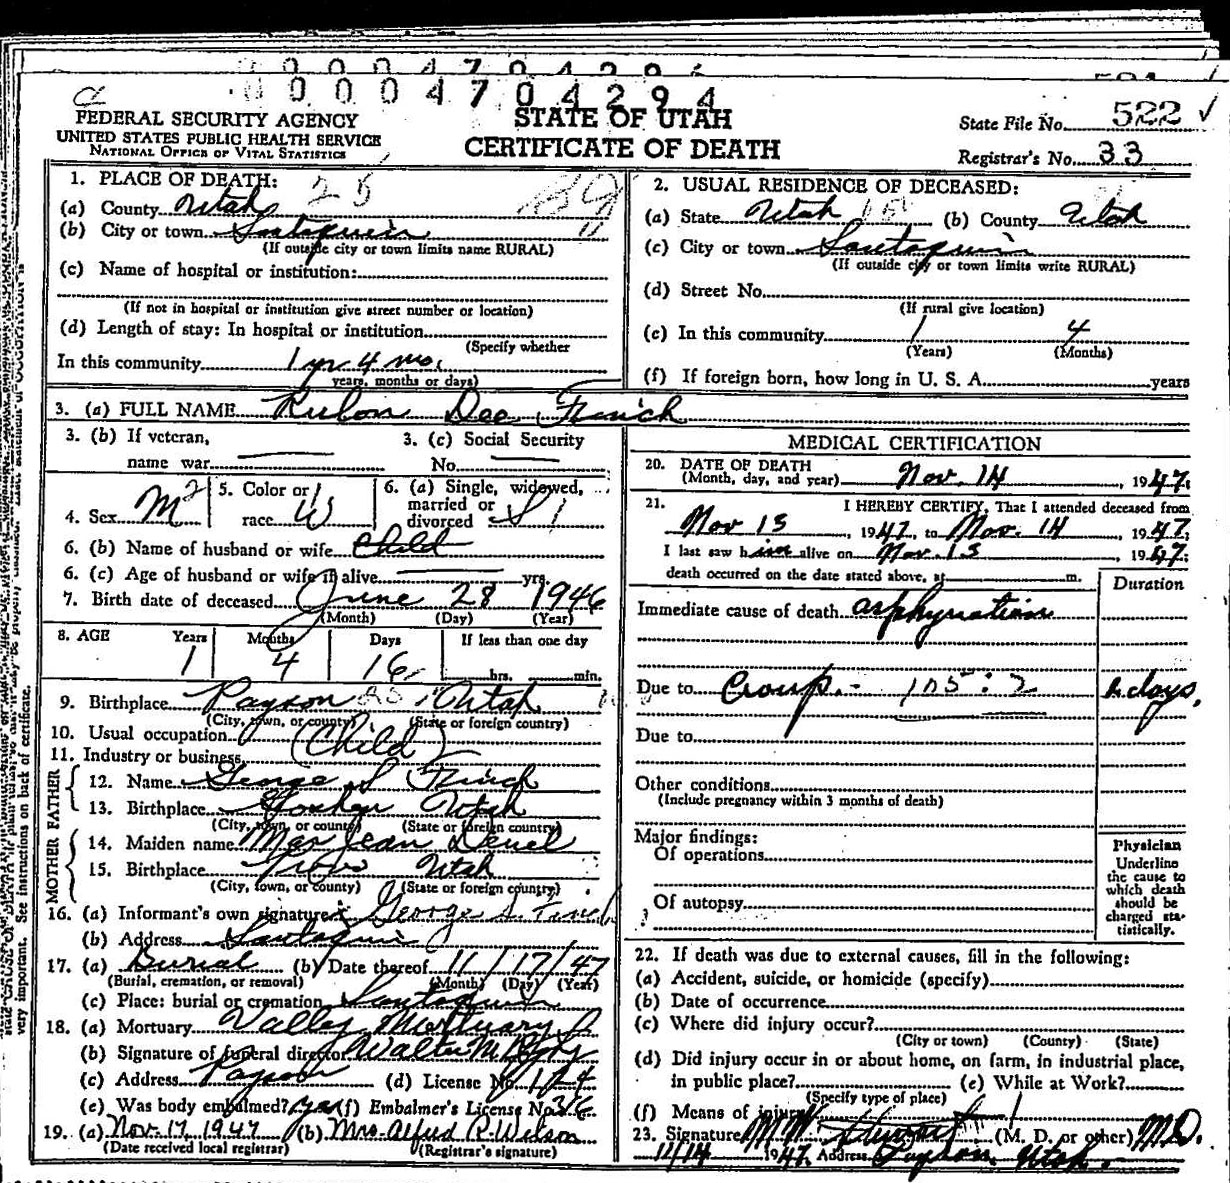 00004704294
FEDERAL SECURITY AGENCY
UNITED STATES PUBLIC HEALTH SERVICE
NATIONAL OFFICE OF VITAL STATISTICS
STATE OF UTAH
CERTIFICATE OF DEATH
State File No. 522
Registrar's No. 33
1. PLACE OF DEATH:
(a) County Utah
(b) City or town Santaquin
(If outside city or town limits name RURAL)
(c) Name of hospital or institution:
(If not in hospital or institution give street number or location)
(d) Length of stay: In hospital or institution
(Specify whether
In this community 1 yr 4 mo.
years, months or days)
2. USUAL RESIDENCE OF DECEASED:
(a) State Utah (b) County Utah
(c) City or town Santaquin
(If outside city or town limits write RURAL)
(d) Street No.
(If rural give location)
(e) In this community 1 4
(Years) (Months)
(f) If foreign born, how long in U. S. A. years
3. (a) FULL NAME Dee Finch
3. (b) If veteran, 3. (c) Social Security
name war No.
4. Sex M 5. Color or race W 6. (a) Single, widowed, married or divorced S
6. (b) Name of husband or wife Child
6. (c) Age of husband or wife if alive yrs.
7. Birth date of deceased June 28 1946
(Month) (Day) (Year)
8. AGE Years Months Days If less than one day
1 4 16 hrs. min.
9. Birthplace Payson Utah
(City, town, or county) (State or foreign country)
10. Usual occupation (Child)
11. Industry or business
FATHER
12. Name George S Finch
13. Birthplace Goshen Utah
(City, town, or county) (State or foreign country)
MOTHER
14. Maiden name Mar Jean Deuel
15. Birthplace Provo Utah
(City, town, or county) (State or foreign country)
16. (a) Informant's own signature George S. Finch
(b) Address Santaquin
17. (a) Burial (b) Date thereof 11/17/47
(Burial, cremation, or removal) (Month) (Day) (Year)
(c) Place: burial or cremation Santaquin
18. (a) Mortuary Valley Mortuary
(b) Signature of funeral director Walter M
(c) Address Payson (d) License No.
(e) Was body embalmed? yes (f) Embalmer's License No.
19. (a) Nov. 17, 1947 (b) Mrs. Alfred R. Wilson
(Date received local registrar) (Registrar's signature)
MEDICAL CERTIFICATION
20. DATE OF DEATH
(Month, day, and year) Nov. 14, 1947.
21. I HEREBY CERTIFY, That I attended deceased from
Nov 13, 1947, to Nov. 14 1947;
I last saw him alive on Nov. 13 1947;
death occurred on the date stated above, at m.
Duration
Immediate cause of death asphyxation
Due to Croup. - 105:2 days,
Due to
Other conditions
(Include pregnancy within 3 months of death)
Major findings:
Of operations
Of autopsy
Physician
Underline
the cause to
which death
should be
charged sta-
tistically.
22. If death was due to external causes, fill in the following:
(a) Accident, suicide, or homicide (specify)
(b) Date of occurrence
(c) Where did injury occur?
(City or town) (County) (State)
(d) Did injury occur in or about home, on farm, in industrial place,
in public place? (e) While at Work?
(Specify type of place)
(f) Means of injury
23. Signature M W Stewart (M. D. or other) M.D.
11/14 1947. Address Payson, Utah.
very important. See instructions on back of certificate.